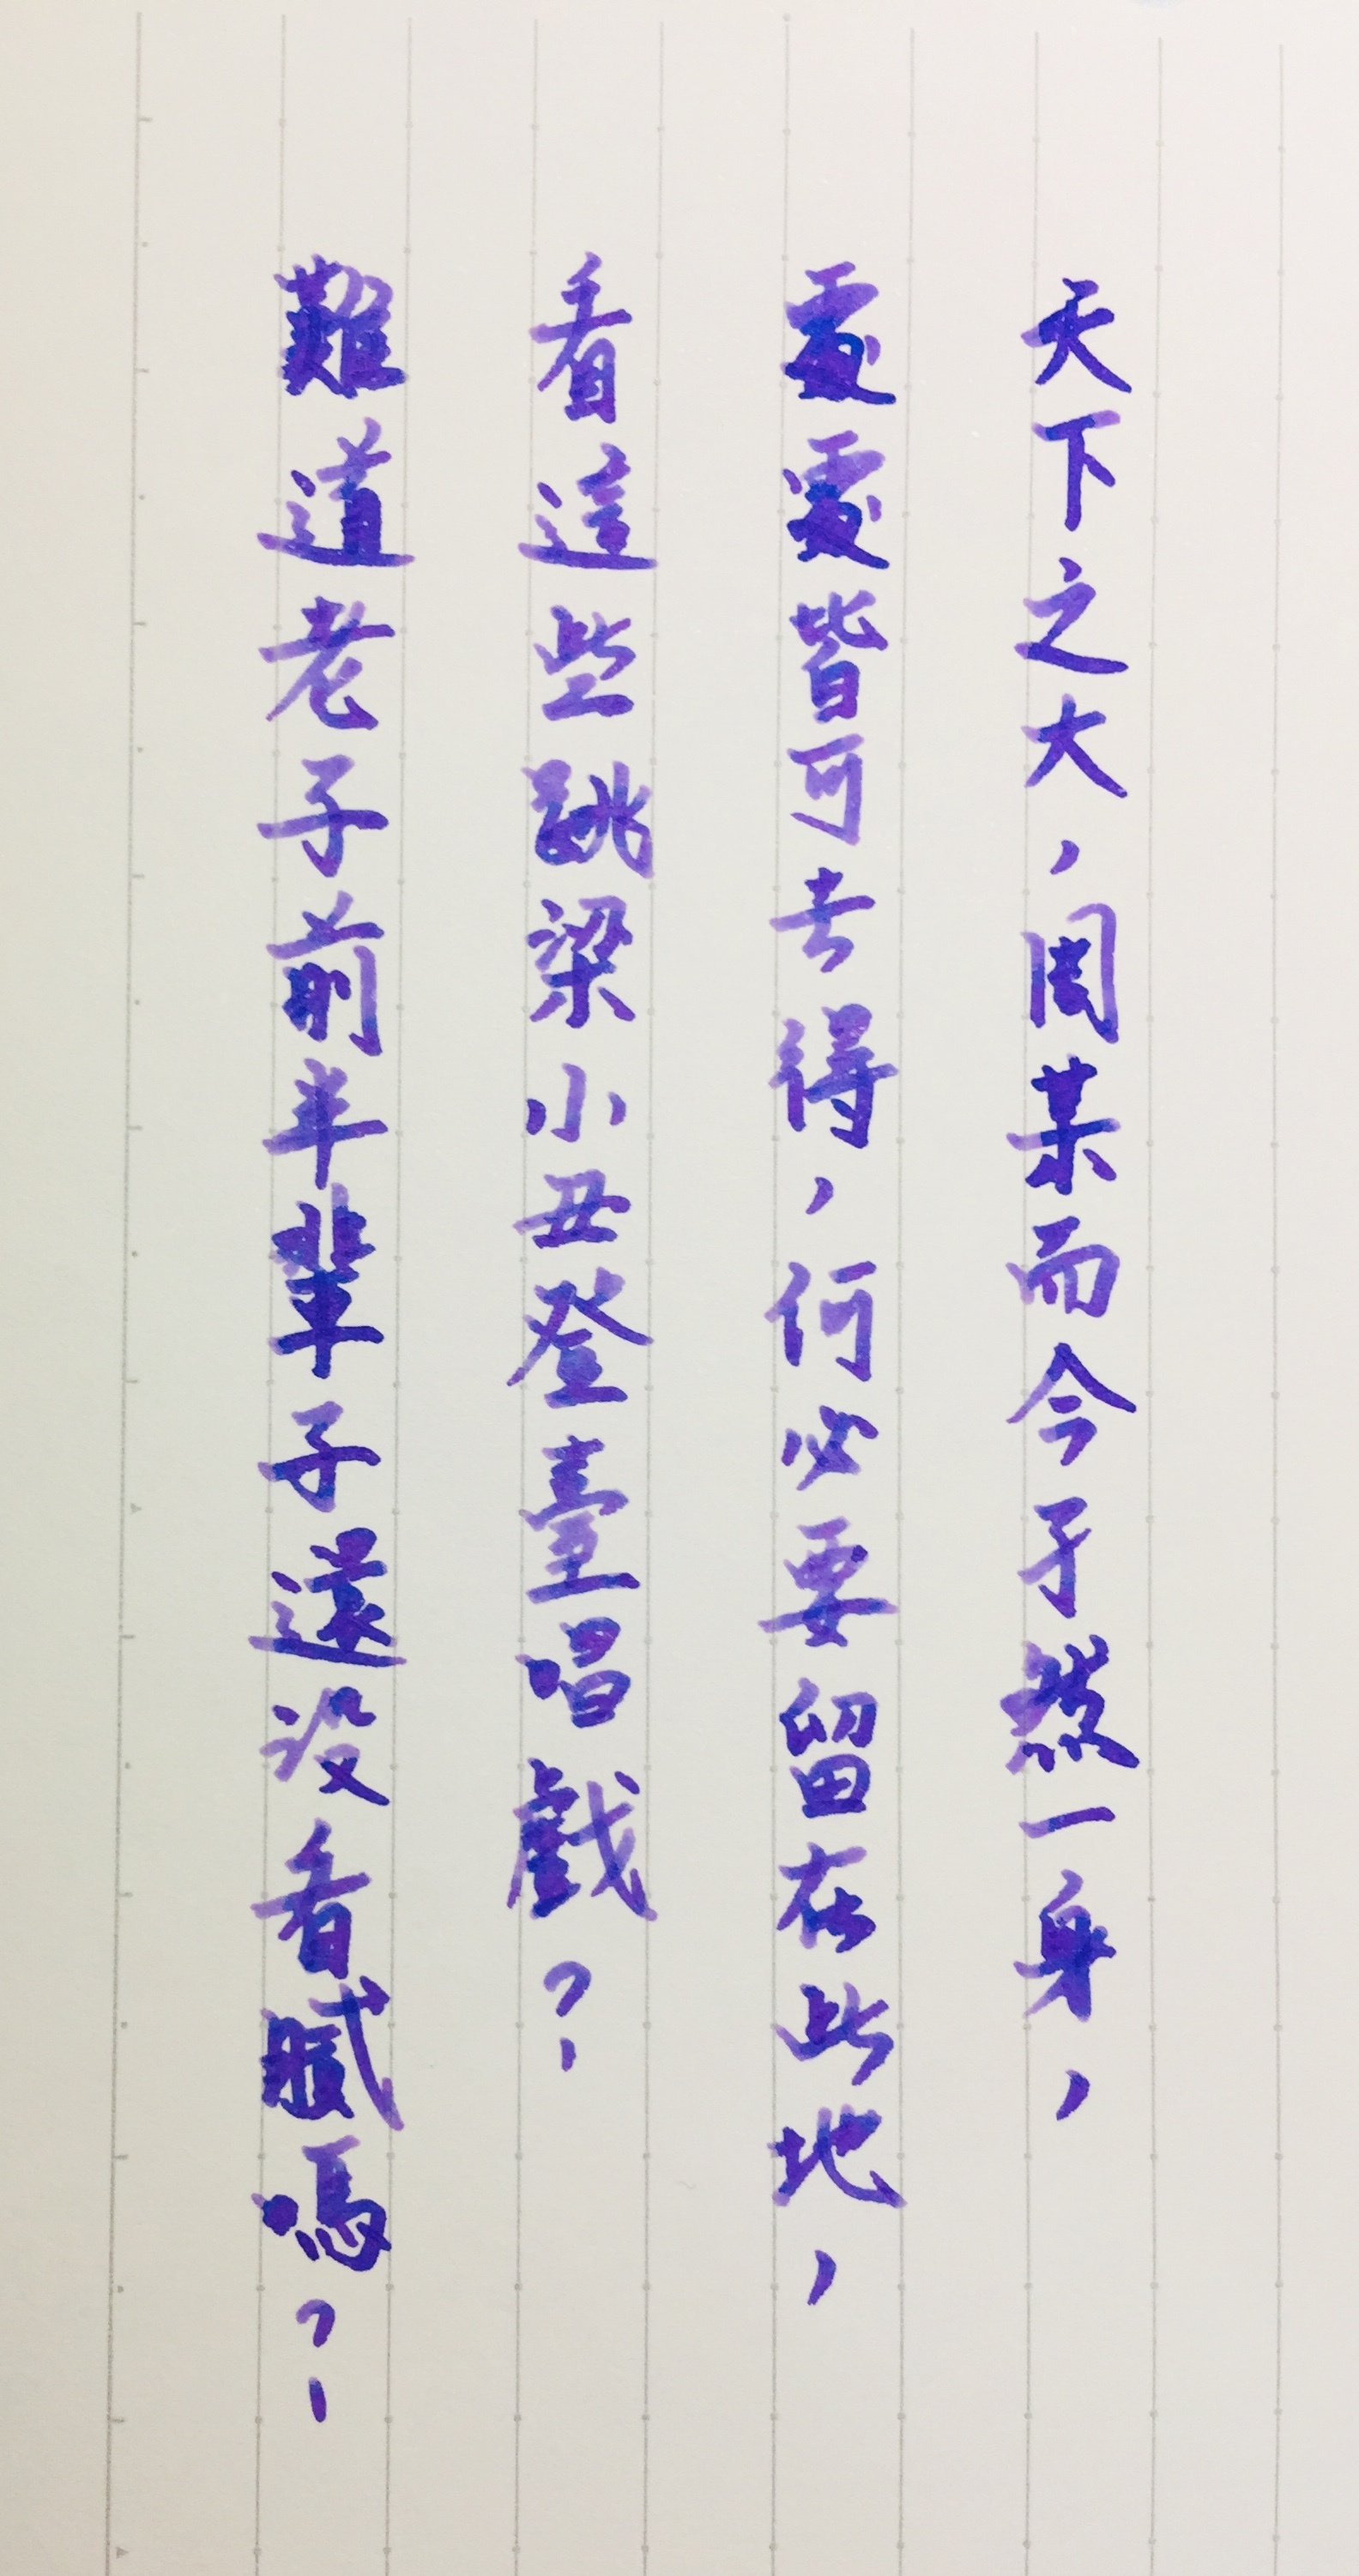 天下之大，周某而今孑然一身，
處處皆可去得，何必要留在此地，
看這些跳梁小丑登臺唱戲？
難道老子前半輩子還没看膩嗎？